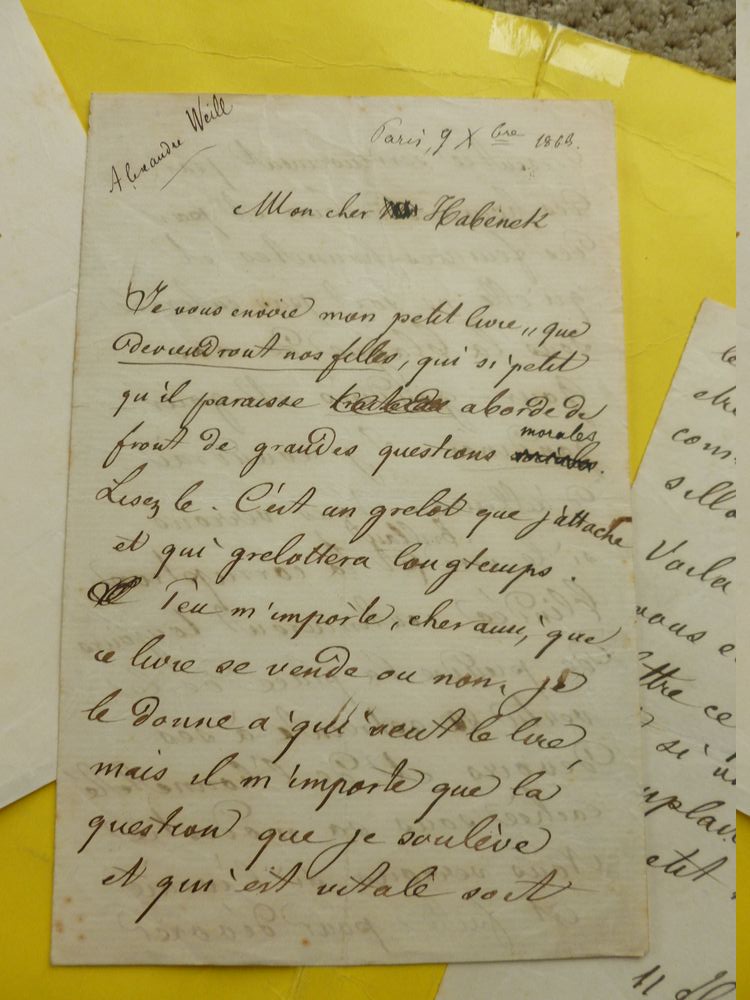 Alexandre Weill
Paris, 9 Xbre 1863.
Mon cher Habeneck
Je vous envoie mon petit livre „ que
deviendront nos filles, qui si petit
qu'il paraisse aborde de
front de grandes questions morales.
Lisez le. C'est un grelot que j'attache
et qui grelottera longtemps.
Peu m'importe, cher ami, que
ce livre se vende ou non, je
le donne a qui veut le lire,
mais il m'importe que la
question que je soulève
et qui est vitale soit
Voila
vous e
ttre ce
si v
etit